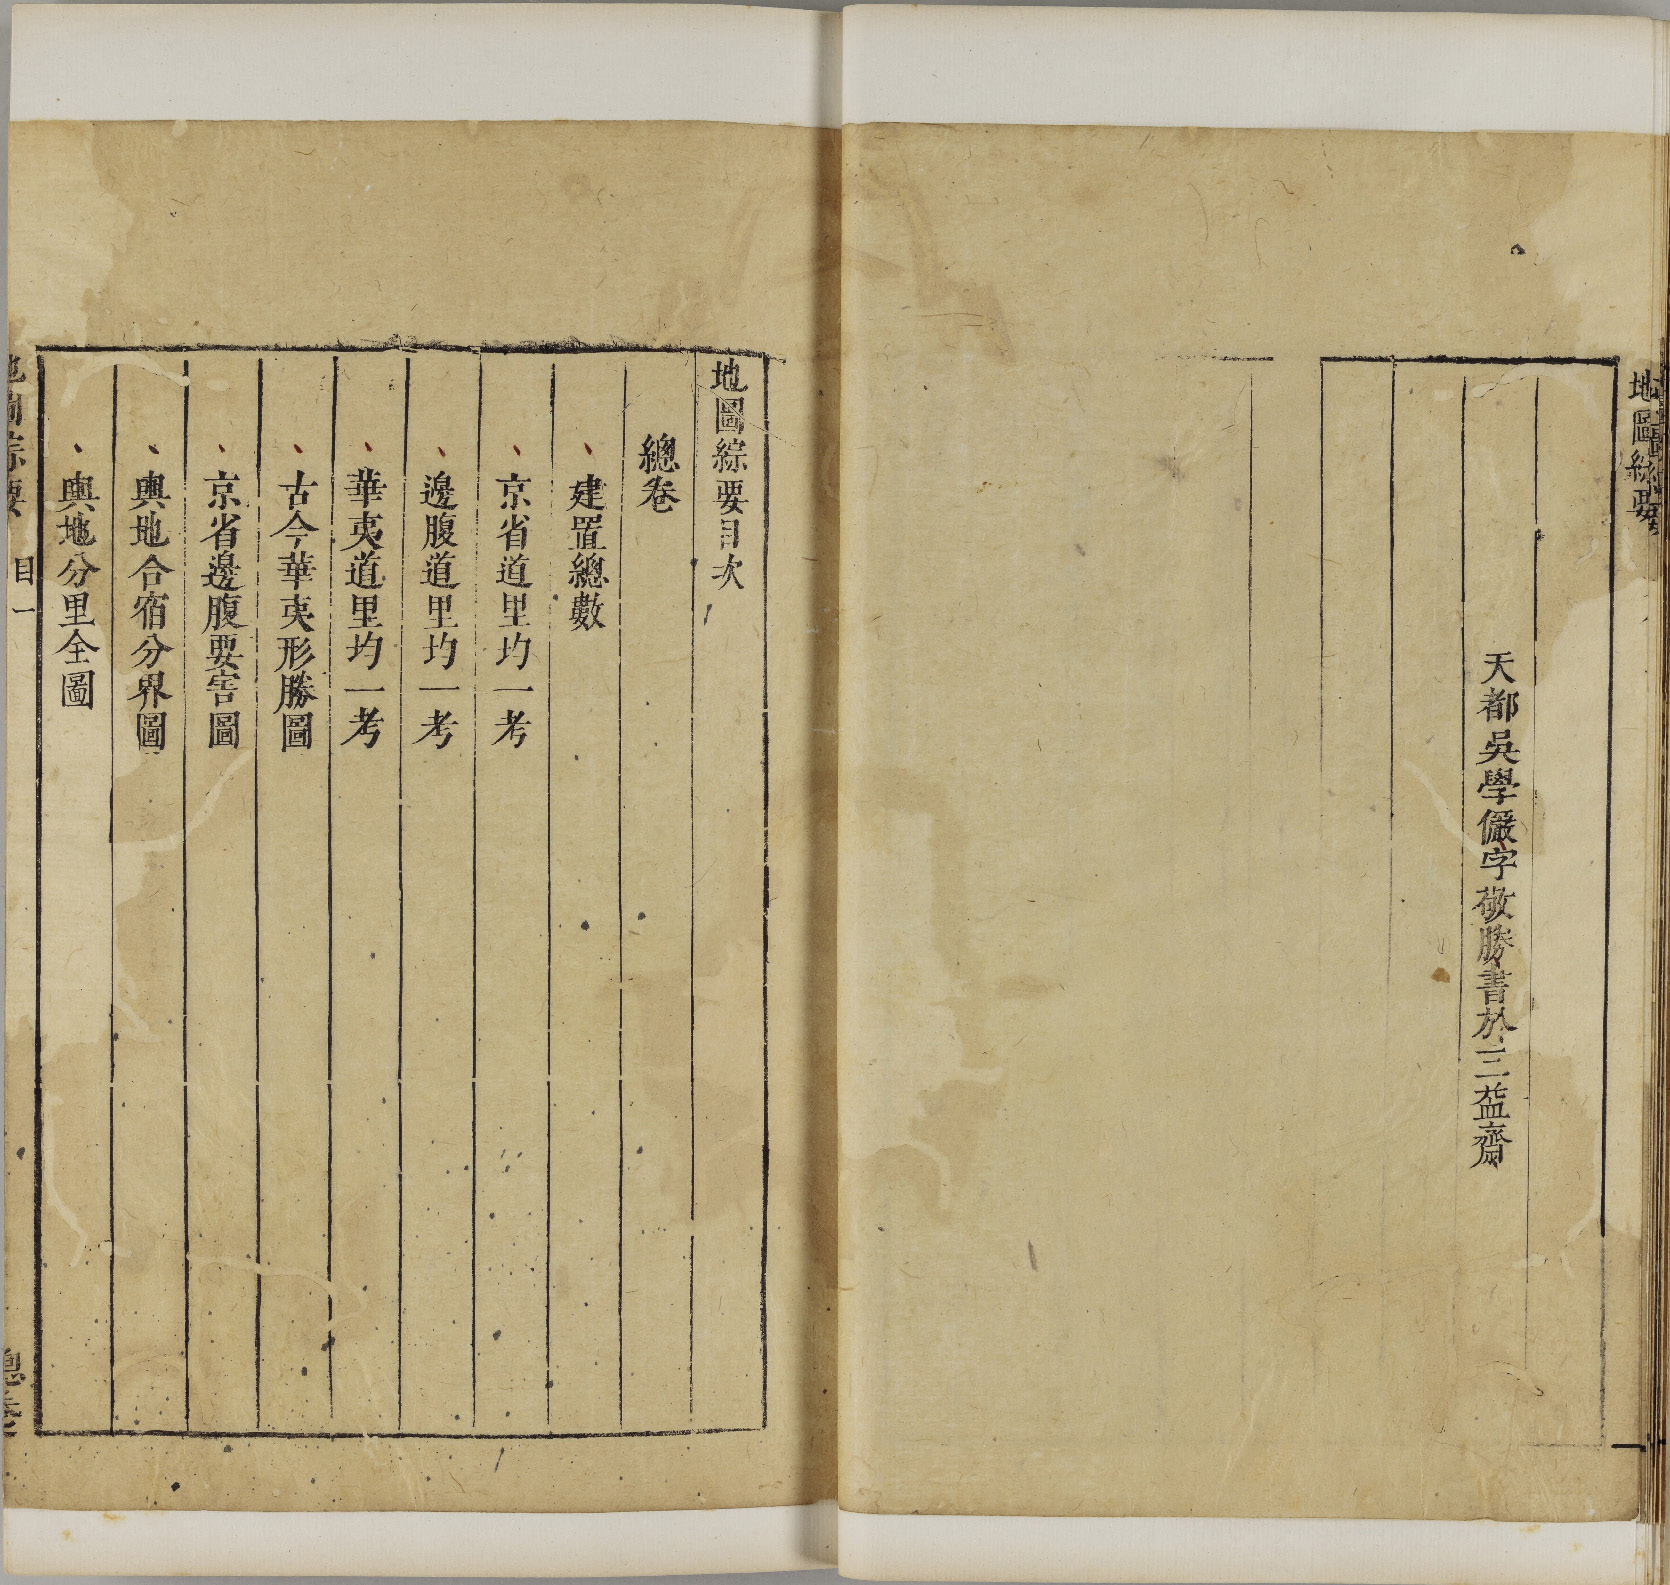 地圖綜要
天都吳學儼字敬勝書於三益齋
地圖綜要目次
總卷
建置總數
京省道里均一考
邊腹道里均一考
華夷道里均一考
古今華夷形勝圖
京省邊腹要害圖
輿地合宿分界圖
輿地分里全圖
地圖綜要 目一 總卷